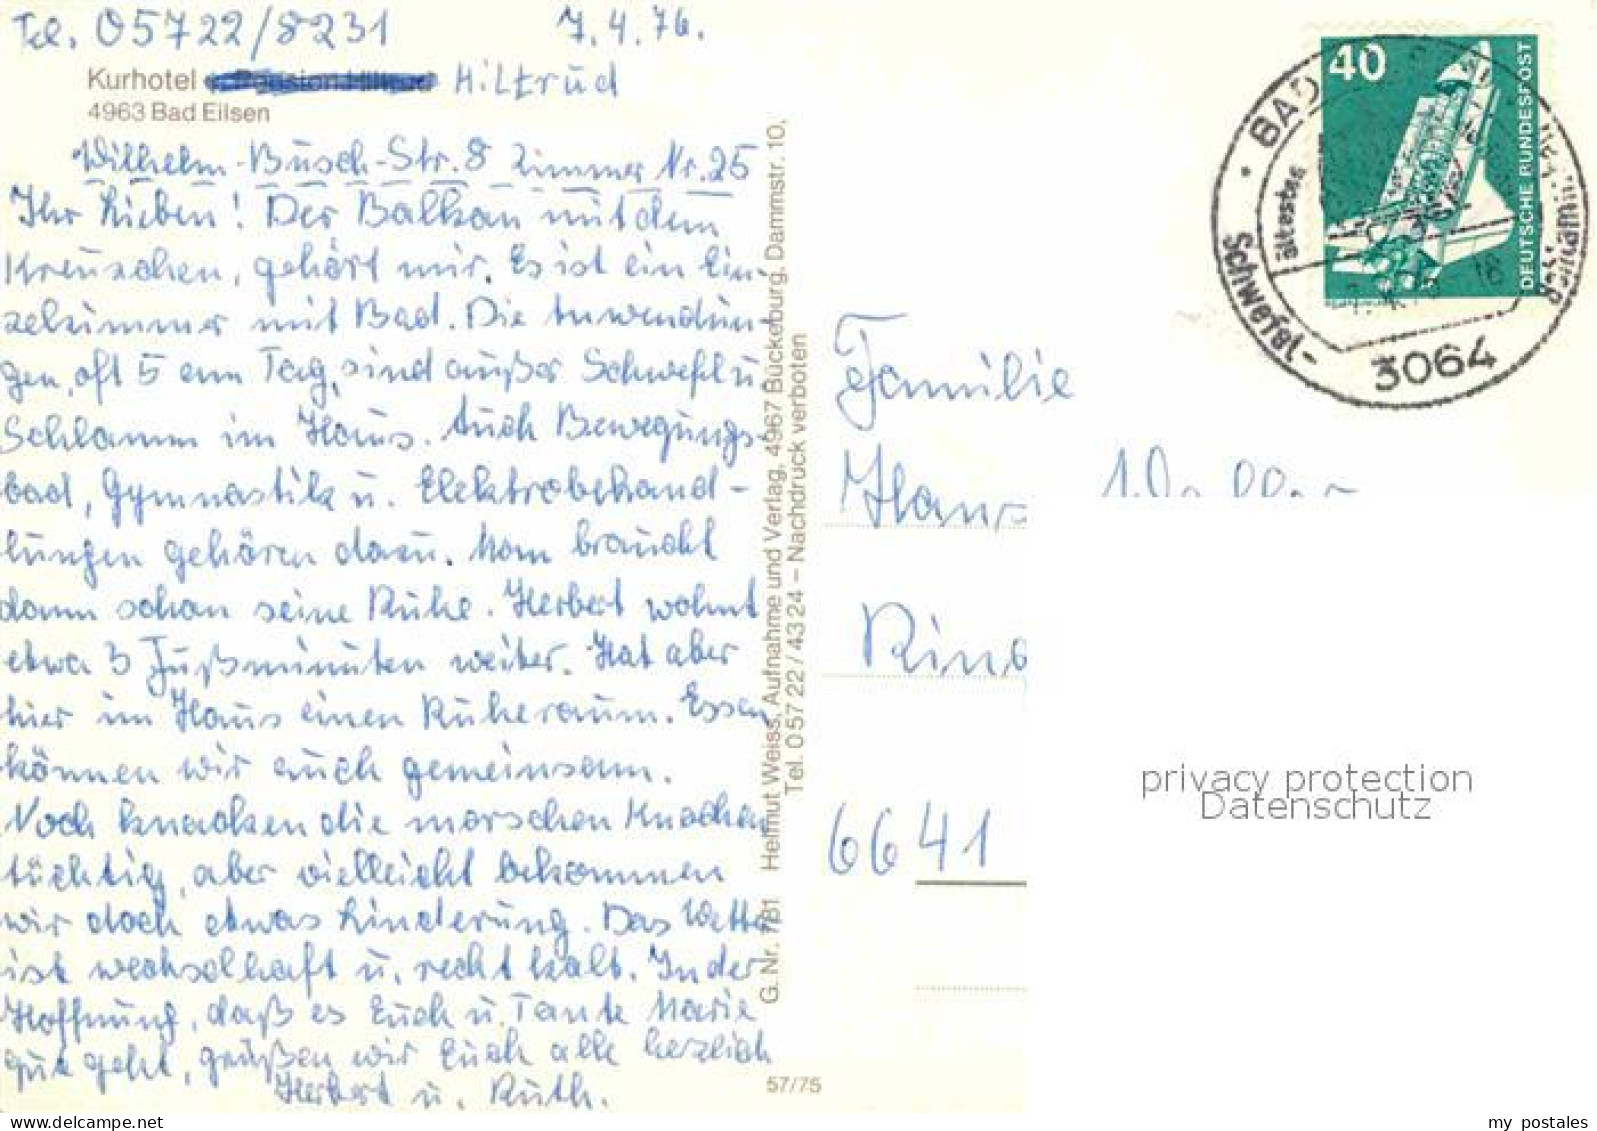 Tel. 05722/8231 7.4.76.
Kurhotel Hiltrud
4963 Bad Eilsen
Wilhelm-Busch-Str. 8 Zimmer Nr. 25
Ihr Lieben! Der Balkon mit dem
Kreuzchen, gehört mir. Es ist ein Ein-
zelzimmer mit Bad. Die Anwendun-
gen, oft 5 am Tag, sind außer Schwefel u.
Schlamm im Haus. Auch Bewegungs-
bad, Gymnastik u. Elektrobehand-
lungen gehören dazu. Man braucht
dann schon seine Ruhe. Herbert wohnt
etwa 3 Fußminuten weiter. Hat aber
hier im Haus einen Ruheraum. Essen
können wir auch gemeinsam.
Noch knacken die morschen Knochen
tüchtig, aber vielleicht bekommen
wir doch etwas Linderung. Das Wetter
ist wechselhaft u. recht kalt. In der
Hoffnung, daß es Euch u. Tante Marie
gut geht, grüßen wir Euch alle herzlich
Herbert u. Ruth.
G. Nr. 781 Helmut Weiss, Aufnahme und Verlag, 4967 Bückeburg, Dammstr. 10,
Tel. 05722/4324 – Nachdruck verboten
57/75
40
DEUTSCHE BUNDESPOST
BAD
ältestes
Schwefel-
3064
Familie
Hans
6641
privacy protection
Datenschutz
my postales